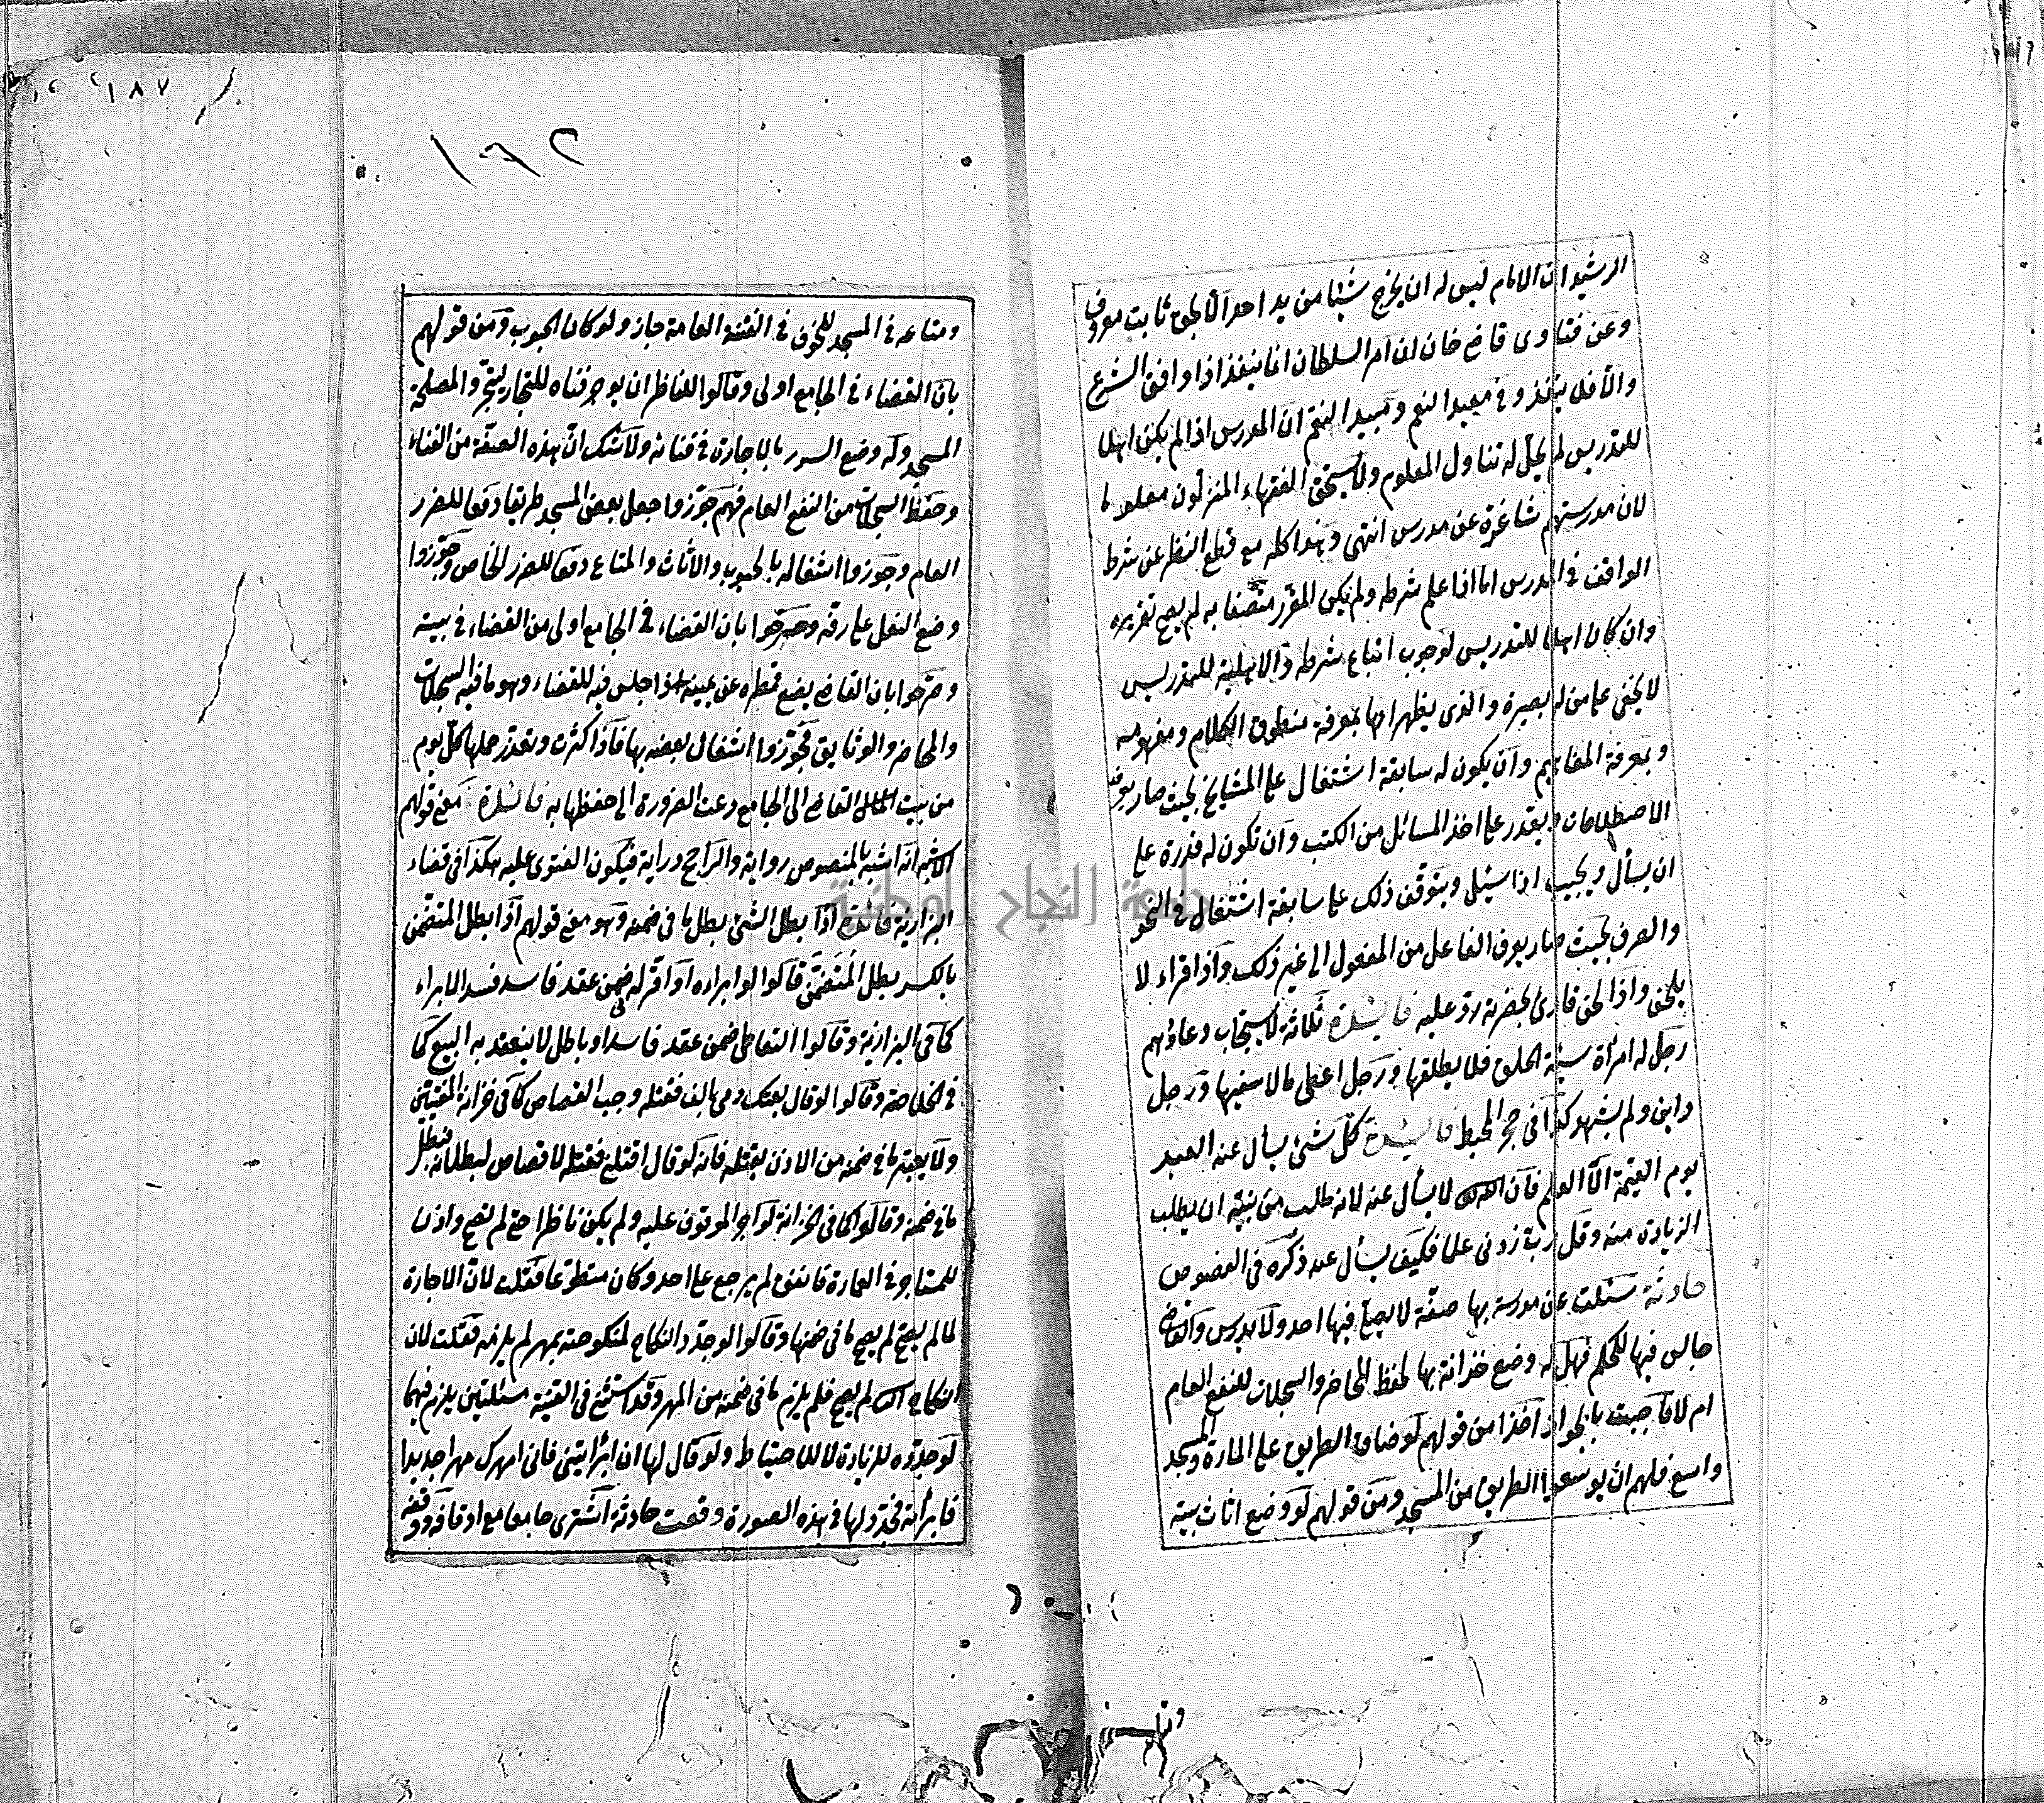 الرشيد ان الامام ليس له ان يخرج شيئا من يد احد الا بحق ثابت معروف
وعن فتاوى قاضي خان ان امر السلطان انما ينفذ اذا وافق الشرع
والا فلا ينفذ وفي معيد النعم ومبيد النقم ان المدرس اذا لم يكن اهلا
للتدريس لم يحل له تناول المعلوم ولا يستحق الفقهاء المنزلون معلوما
لان مدرستهم شاغرة عن مدرس انتهى وهذا كله مع قطع النظر عن شرط
الواقف في المدرس اما اذا علم شرطه ولم يكن المقرر متصفا به لم يصح تقريره
وان كان اهلا للتدريس لوجوب اتباع شرطه والاهلية للتدريس
لا يخفى على من له بصيرة والذي يظهر انها بمعرفة منطوق الكلام ومفهومه
وبمعرفة المفاهيم وان يكون له سابقة اشتغال على المشايخ بحيث صار يعرف
الاصطلاحات ويقدر على اخذ المسائل من الكتب وان تكون له قدرة على
ان يسأل ويجيب اذا سئل ويتوقف ذلك على سابقة اشتغال في النحو
والصرف بحيث صار يعرف الفاعل من المفعول الى غير ذلك واذا قراء لا
يلحن واذا لحن قارئ بحضرته رد عليه فائدة ثلاثة لا يستجاب دعاؤهم
رجل له امرأة سيئة الخلق فلا يطلقها ورجل اعطى مالا سفيها ورجل
داين ولم يشهد كذا في حجر المحيط فائدة كل شئ يسأل عنه العبد
يوم القيمة الا العلم فان الله لا يسأل عنه لانه طلب من نبيه ان يطلب
الزيادة منه وقل رب زدني علما فكيف يسأل عنه ذكره في الفصوص
حادثة سئلت عن مدرسة بها صفة لا يصلي فيها احد ولا يدرس والقاضي
جالس فيها للحكم فهل له وضع خزانة بها لحفظ المحاضر والسجلات للنفع العام
ام لا فاجبت بالجواز اخذا من قولهم لو ضاق الطريق على المارة والمسجد
واسع فلهم ان يوسعوا الطريق من المسجد ومن قولهم لو وضع اثاث بيته
ومتا
١٨٧
١٨٢
ومتاعه في المسجد للخوف في الفتنة العامة جاز ولو كان الحبوب ومن قولهم
بان القضاء في الجامع اولى وقالوا للناظر ان يوجر فناه للتجار ليتجروا لمصلحة
المسجد وله وضع السرر بالاجارة في فنائه ولا شك ان هذه الصفة من الفناء
وحفظ السجلات من النفع العام فهم جوزوا جعل بعض المسجد طريقا دفعا للضرر
العام وجوزوا اشغاله بالحبوب والاثاث والمتاع دفعا للضرر الخاص وجوزوا
وضع النعل على رفه وصرحوا بان القضاء في الجامع اولى من القضاء في بيته
وصرحوا بان القاضي يضع قمطره عن يمينه اذا جلس فيه للقضاء وهو ما فيه السجلات
والمحاضر والوثايق فجوزوا اشغال بعضه بها فاذا كثرت وتعذر حملها كل يوم
من بيت القاضي الى الجامع دعت الضرورة الى حفظها به فائدة معنى قولهم
الاشبه انه اشبه بالمنصوص رواية والراجح دراية فيكون الفتوى عليه هكذا في قضاء
البزازية فائدة اذا بطل الشئ بطل ما في ضمنه وهو معنى قولهم اذا بطل المتضمن
بالكسر بطل المتضمن قالوا لو ابراءه او اقر له ضمن عقد فاسد فسد الابراء
كما في البزازية وقالوا التعاطي ضمن عقد فاسد او باطل لا ينعقد به البيع كما
في الخلاصة وقالوا لو قال بعتك دمي بالف فقتله وجب القصاص كما في خزانة المفتيين
ولا يعتبر ما في ضمنه من الاذن بقتله فانه لو قال اقتلني فقتله لا قصاص لبطلانه فبطل
ما في ضمنه وقالوا كما في الخزانة لو آجر الموقوف عليه ولم يكن ناظرا حتى لم تصح واذن
للمستاجر في العمارة فانفق لم يرجع على احد وكان متطوعا فقلت لان الاجارة
لما لم يصح لم يصح ما في ضمنها وقالوا لو جدد النكاح لمنكوحته بمهر لم يلزمه فقلت لان
النكاح لم يصح فلم يلزم ما في ضمنه من المهر وقد استثنى في القنية مسئلتين يلزم فيهما
لو جدده للزيادة لا للاحتياط ولو قال لها ان ابرأتيني فاني امهرك مهرا جديدا
فابرأته فجدد لها في هذه الصورة وقعت حادثة اشترى جامعا مع اوقافه ووقفه
جامعة النجاح الوطنية